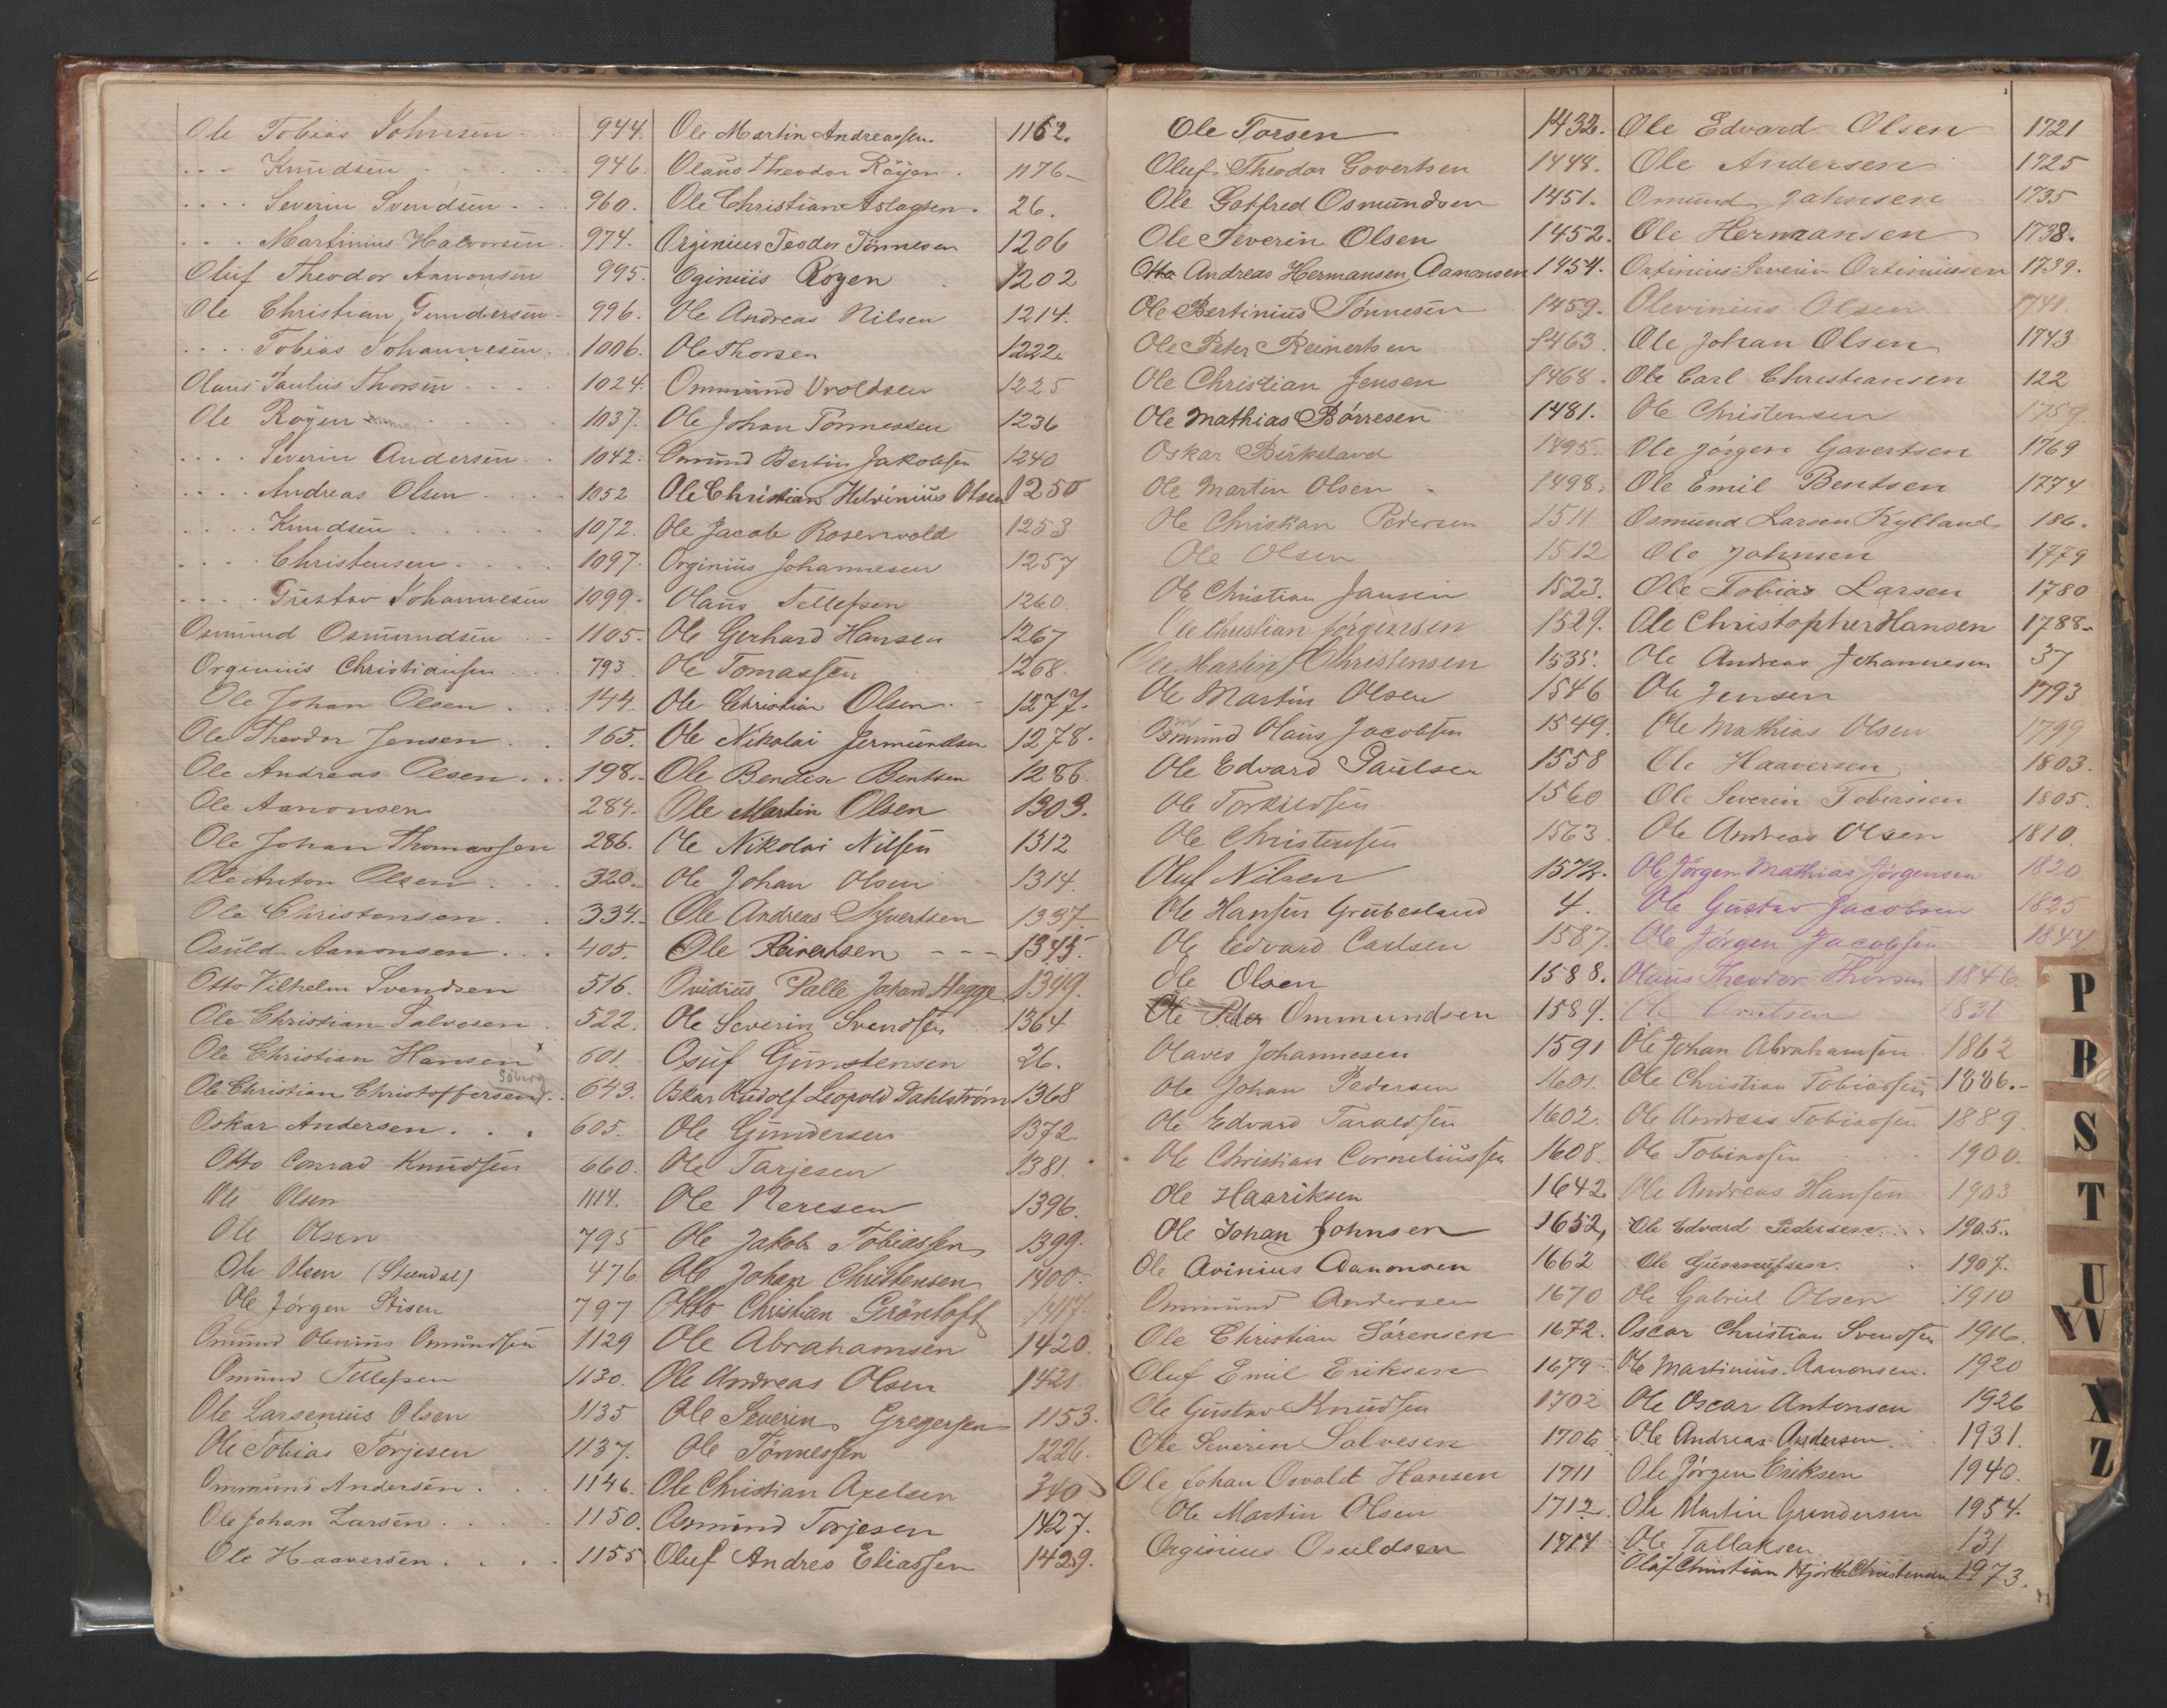 Ole Tobias Johnsen 944.
- - - Knudsen 946.
- - - - Severin Svendsen 960.
- - - Martinius Halvorsen 974.
Oluf Theodor Aanonsen 995.
Ole Christian Gundersen 996.
- - - - Tobias Johannesen 1006.
Olaus Paulus Thorsen 1024.
Ole Røyen 1037.
- - - - Severin Andersen 1042.
- - - - Andreas Olsen 1052
- - - - Knudsen 1072.
- - - - Christensen 1097.
- - - - Gustav Johannesen 1099.
Osmund Osmundsen 1105.
Orginius Christiansen 793
Ole Johan Olsen 144.
Ole Theodor Jensen 165.
Ole Andreas Olsen 198.
Ole Aanonsen 284.
Ole Johan Thomassen 286.
Ole Anton Olsen 320.
Ole Christensen 334.
Osuld Aanonsen 405.
Otto Vilhelm Svendsen 516.
Ole Christian Salvesen 522.
Ole Christian Hansen x 601.
Ole Christian Christoffersen 643.
Oskar Andersen 605.
Otto Conrad Knudsen 660.
Ole Olsen 1114.
Ole Olsen 795
Ole Olsen (Stendal) 476
Ole Jørgen Stisen 797
Omund Olenius Omundsen 1129
Omund Tellefsen 1130.
Ole Larsenius Olsen 1135
Ole Tobias Torjesen 1137.
Ommund Andersen 1146.
Ole Johan Larsen 1150.
Ole Haaversen 1155
Ole Martin Andreassen 1162.
Olaus Theodor Røyen 1176
Ole Christian Aslagsen 26.
Orginius Teodor Tönnesen 1206
Oginius Royen 1202
Ole Andreas Nilsen 1214.
Ole Thorsen 1222.
Ommund Uvoldsen 1225
Ole Johan Tönnessen 1236
Omund Bertin Jakobsen 1240
Ole Christian Helvinius Olsen 1250
Ole Jacob Rosenvold 1253
Orginius Johannesen 1257
Olaus Tellefsen 1260
Ole Gerhard Hansen 1267
Ole Tomassen 1268.
Ole Christian Olsen 1277.
Ole Nikolai Jermundsen 1278.
Ole Bendix Bentsen 1286
Ole Martin Olsen 1303.
Ole Nikolai Nilsen 1312
Ole Johan Olsen 1314
Ole Andreas Syvertsen 1337
Ole Reiersen 1345.
Ovidius Palle Johan Hegge 1349.
Ole Severin Svendsen 1364
Osuf Gunstensen 26.
Oskar Rudolf Leopold Dahlström 1368
Ole Gundersen 1372.
Ole Tarjesen 1381.
Ole Neresen 1396.
Ole Jakob Tobiassen 1399.
Ole Johan Christensen 1400.
Otto Christian Gröntoft 1417.
Ole Abrahamsen 1420.
Ole Andreas Olsen 1421.
Ole Severin Gregersen 1153.
Ole Tönnessen 1226.
Ole Christian Axelsen 340
Asmund Torjesen 1427.
Oluf Andres Eliassen 1429.
Ole Torsen 1432.
Oluf Theodor Govertsen 1448.
Ole Gotfred Osmundsen 1451.
Ole Severin Olsen 1452.
Otto Andreas Hermansen Aanonsen 1454.
Ole Bertinius Tönnesen 1459.
Ole Peter Reinertsen 1463
Ole Christian Jensen 1468.
Ole Mathias Börresen 1481.
Oskar Birkeland 1495.
Ole Martin Olsen 1498.
Ole Christian Pedersen 1511
Ole Olsen 1512
Ole Christian Jansen 1523.
Ole Christian Jörgensen 1529.
Ole Martin Christensen 1535.
Ole Martin Olsen 1546
Olaus Jacobsen 1549.
Ole Edvard Paulsen 1558
Ole Torkildsen 1560
Ole Christensen 1563
Oluf Nilsen 1572.
Ole Hansen Grubesland 4.
Ole Edvard Carlsen 1587.
Ole Olsen 1588.
Ole Peder Ommundsen 1589.
Olavis Johannesen 1591
Ole Johan Pedersen 1601.
Ole Edvard Taraldsen 1602.
Ole Christian Corneliussen 1608.
Ole Haariksen 1642.
Ole Johan Johnsen 1652,
Ole Avinius Aanonsen 1662
Ommund Andersen 1670
Ole Christian Sörensen 1672.
Oluf Emil Eriksen 1679
Ole Gustav Knudsen 1702
Ole Severin Salvesen 1706
Ole Johan Osvald Hansen 1711
Ole Martin Olsen 1712.
Orginius Osuldsen 1714
Ole Edvard Olsen 1721
Ole Andersen 1725
Omund Johnsen 1735
Ole Hermansen 1738.
Ortinius Severin Ortiniussen 1739.
Olevinius Olsen 1741.
Ole Johan Olsen 1743
Ole Carl Christiansen 122
Ole Christensen 1759
Ole Jörgen Gavertsen 1769
Ole Emil Bentsen 1774
Osmund Larsen Kylland 186.
Ole Johnsen 1779
Ole Tobias Larsen 1780
Ole Christopher Hansen 1788.
Ole Andreas Johannesen 37
Ole Jensen 1793
Ole Mathias Olsen 1799
Ole Haaversen 1803.
Ole Severin Tobiassen 1805.
Ole Andreas Olsen 1810.
Ole Jørgen Mathias Jørgensen 1820
Ole Gustav Jacobsen 1825
Ole Jørgen Jacobsen 1844
Olaus Theodor Thorsen 1846.
Ole Arntsen 1831
Ole Johan Abrahamsen 1862
Ole Christian Tobiassen 1886.
Ole Andreas Tobiassen 1889.
Ole Tobiassen 1900.
Ole Andreas Hansen 1903
Ole Edvard Pedersen 1905.
Ole Gunnufsen 1907.
Ole Gabriel Olsen 1910
Oscar Christian Svendsen 1916.
Ole Martinius Aanonsen 1920
Ole Oscar Antonsen 1926
Ole Andreas Andersen 1931.
Ole Jørgen Eriksen 1940.
Ole Martin Gundersen 1954.
Ole Tallaksen 131
Olaf Christian Hjorth Christensen 1973.
P
R
S
T
U
W
X
Z